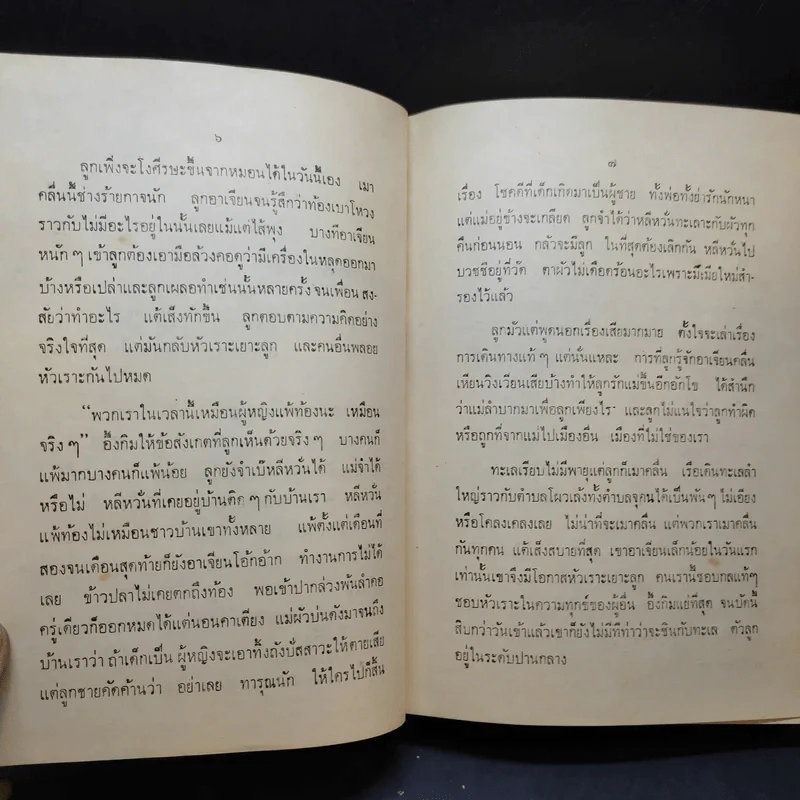 ๖
ลูกเพิ่งจะโงศีรษะขึ้นจากหมอนได้ในวันนี้เอง เมา
คลื่นนี้ช่างร้ายกาจนัก ลูกอาเจียนจนรู้สึกว่าท้องเบาโหวง
ราวกับไม่มีอะไรอยู่ในนั้นเลยแม้แต่ไส้พุง บางทีอาเจียน
หนัก ๆ เข้าลูกต้องเอามือล้วงคอดูว่ามีเครื่องในหลุดออกมา
บ้างหรือเปล่าและลูกเผลอทำเช่นนั้นหลายครั้ง จนเพื่อน สง-
สัยว่าทำอะไร แต้เส็งทักขึ้น ลูกตอบตามความคิดอย่าง
จริงใจที่สุด แต่มันกลับหัวเราะเยาะลูก และคนอื่นพลอย
หัวเราะกันไปหมด
“พวกเราในเวลานี้เหมือนผู้หญิงแพ้ท้องนะ เหมือน
จริง ๆ” อั้งกิมให้ข้อสังเกตที่ลูกเห็นด้วยจริง ๆ บางคนก็
แพ้มากบางคนก็แพ้น้อย ลูกยังจำเป๊หลีหวั่นได้ แม่จำได้
หรือไม่ หลีหวั่นที่เคยอยู่บ้านติด ๆ กับบ้านเรา หลีหวั่น
แพ้ท้องไม่เหมือนชาวบ้านเขาทั้งหลาย แพ้ตั้งแต่เดือนที่
สองจนเดือนสุดท้ายก็ยังอาเจียนโอ้กอ้าก ทำงานการไม่ได้
เลย ข้าวปลาไม่เคยตกถึงท้อง พอเข้าปากล่วงพ้นลำคอ
ครู่เดียวก็ออกหมดได้แต่นอนคาเตียง แม่ผัวบ่นดังมาจนถึง
บ้านเราว่า ถ้าเด็กเป็น ผู้หญิงจะเอาทิ้งถังปัสสาวะให้ตายเสีย
แต่ลูกชายคัดค้านว่า อย่าเลย ทารุณนัก ให้ใครไปก็สิ้น
๗
เรื่อง โชคดีที่เด็กเกิดมาเป็นผู้ชาย ทั้งพ่อทั้งย่ารักนักหนา
แต่แม่อยู่ข้างจะเกลียด ลูกจำได้ว่าหลีหวั่นทะเลาะกับผัวทุก
คืนก่อนนอน กลัวจะมีลูก ในที่สุดต้องเลิกกัน หลีหวั่นไป
บวชชีอยู่ที่วัด ตาผัวไม่เดือดร้อนอะไรเพราะมีเมียใหม่สำ-
รองไว้แล้ว
ลูกมัวแต่พูดนอกเรื่องเสียมากมาย ตั้งใจจะเล่าเรื่อง
การเดินทางแท้ ๆ แต่นั่นแหละ การที่ลูกรู้จักอาเจียนคลื่น
เหียนวิงเวียนเสียบ้างทำให้ลูกรักแม่ขึ้นอีกอักโข ได้สำนึก
ว่าแม่ลำบากมาเพื่อลูกเพียงไร และลูกไม่แน่ใจว่าลูกทำผิด
หรือถูกที่จากแม่ไปเมืองอื่น เมืองที่ไม่ใช่ของเรา
ทะเลเรียบไม่มีพายุแต่ลูกก็เมาคลื่น เรือเดินทะเลลำ
ใหญ่ราวกับตำบลโผวเล้งทั้งตำบลจุคนได้เป็นพัน ๆ ไม่เอียง
หรือโคลงเคลงเลย ไม่น่าที่จะเมาคลื่น แต่พวกเราเมาคลื่น
กันทุกคน แต้เส็งสบายที่สุด เขาอาเจียนเล็กน้อยในวันแรก
เท่านั้นเขาจึงมีโอกาสหัวเราะเยาะลูก คนเรานี้ชอบกลแท้ๆ
ชอบหัวเราะในความทุกข์ของผู้อื่น อั้งกิมแย่ที่สุด จนบัดนี้
สิบกว่าวันเข้าแล้วเขาก็ยังไม่มีทีท่าว่าจะชินกับทะเล ตัวลูก
อยู่ในระดับปานกลาง